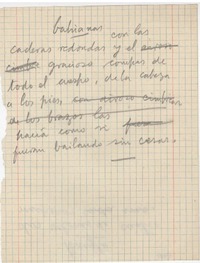 bahianas
con las
caderas redondas y el
gracioso compás de
todo el cuerpo, de la cabeza
a los pies,
a los brazos las
hacía como se
fueran bailando sin cesar.